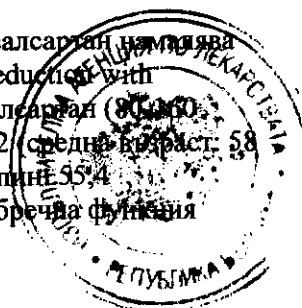 валсартан намалява
eduction with
лсартан (80-160
2 (средна възраст 58
пин) 55,4
бречна функция
АГЕНЦИЯ ПО ЛЕКАРСТВАТА
РЕПУБЛИКА